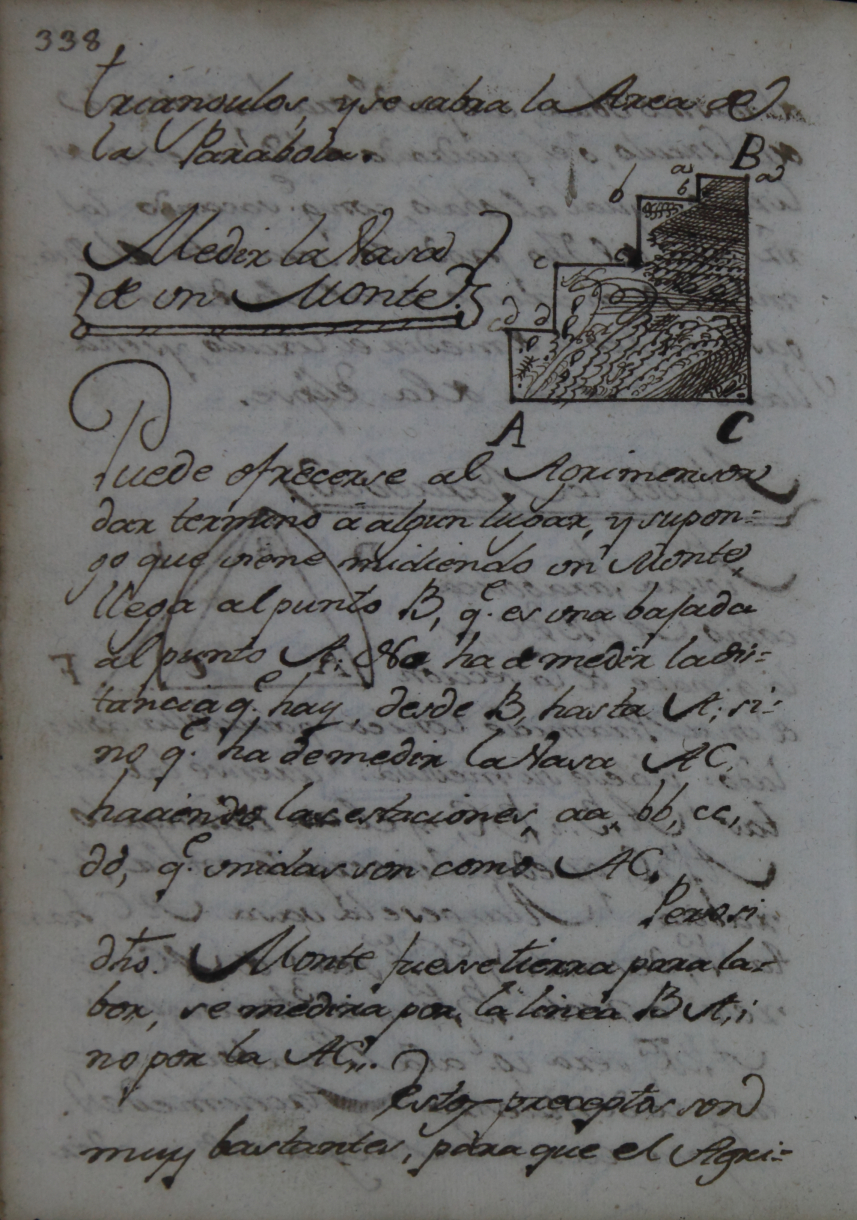 338
trianoulos, y se sabra la Area de
la Parabola.
B
a a
b b
c c
d d
A C
Medir la Vasa
de un Monte.
Puede ofrecerse al Agrimensor
dar termino à algun lugar, y supon-
go que viene midiendo un Monte,
llega al punto B, q.e es una bajada
al punto A; No ha de medir la dis-
tancia q.e hay, desde B, hasta A; si-
no q.e ha de medir la Vasa AC,
haciendo las estaciones, aa, bb, cc,
dd, q.e unidas son como AC.
Pero si
dho. Monte fuese tierra para la-
bor, se medira por la linea BA, i
no por la AC.
Estos preceptos son
muy bastantes, para que el Agri-